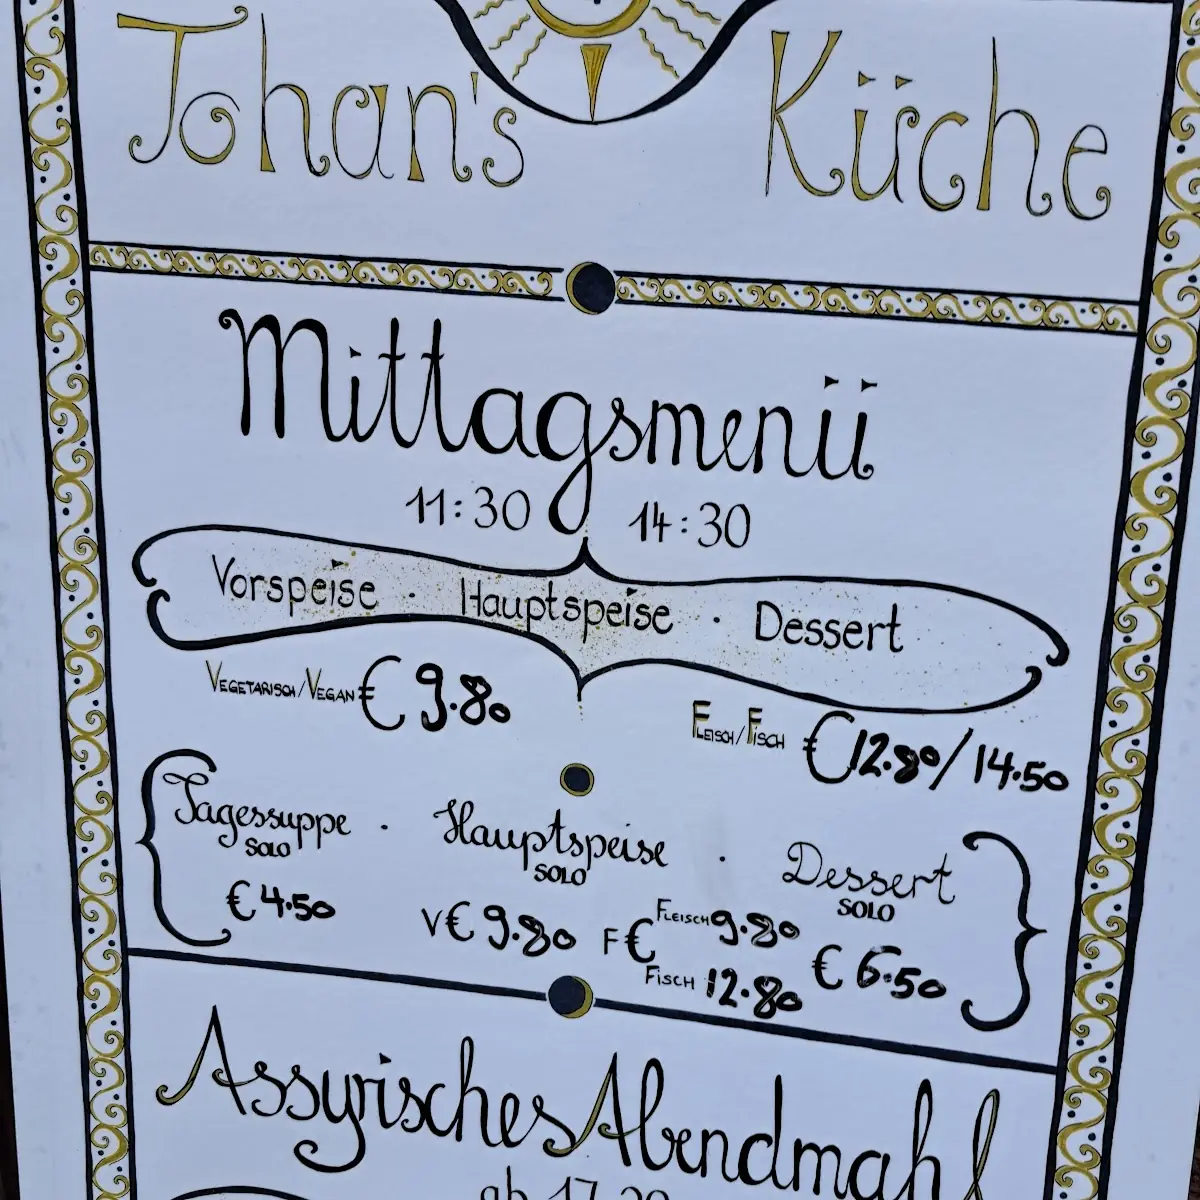 Johan's Küche
Mittagsmenü
11:30 14:30
Vorspeise · Hauptspeise · Dessert
VEGETARISCH/VEGAN € 9.80
FLEISCH/FISCH € 12.80/14.50
Tagessuppe · Hauptspeise · Dessert
SOLO SOLO SOLO
€ 4.50 V€ 9.80 F€ FLEISCH 9.80 € 6.50
FISCH 12.80
Assyrisches Abendmahl
ab 17